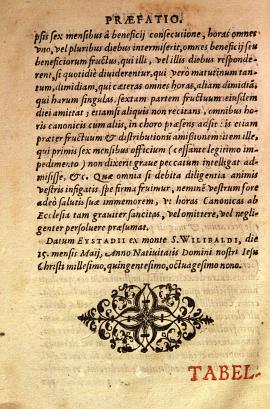 PRÆFATIO.
psis sex mensibus à beneficij consecutione, horas omnes
vno, vel pluribus diebus intermiserit, omnes beneficij seu
beneficiorum fructus, qui illi, vel illis diebus responde-
rent, si quotidiè diuiderentur, qui verò matutinum tan-
tum, dimidiam, qui cæteras omnes horas, aliam dimidiã,
qui harum singulas, sextam partem fructuum eiusdem
diei amittat; etiamsi aliquis non recitans, omnibus ho-
ris canonicis cum alijs, in choro præsens adsit: is etiam
præter fructuũ & distributionũ amissionem item ille,
qui primis sex mensibus officium (cessante legitimo im-
pedimento) non dixerit graue peccatum intelligat ad-
misisse, &c. Quæ omnia si debita diligentia animis
vestris infigatis, spe firma fruimur, neminẽ vestrum fore
adeò salutis suæ immemorem, vt horas Canonicas ab
Ecclesia tam grauiter sancitas, vel omittere, vel negli-
genter persoluere præsumat.
Datum EYSTADII ex monte S. WILIBALDI, die
15. mensis Maij, Anno Natiuitatis Domini nostri Iesu
Christi millesimo, quingentesimo, octuagesimo nono.
TABEL.